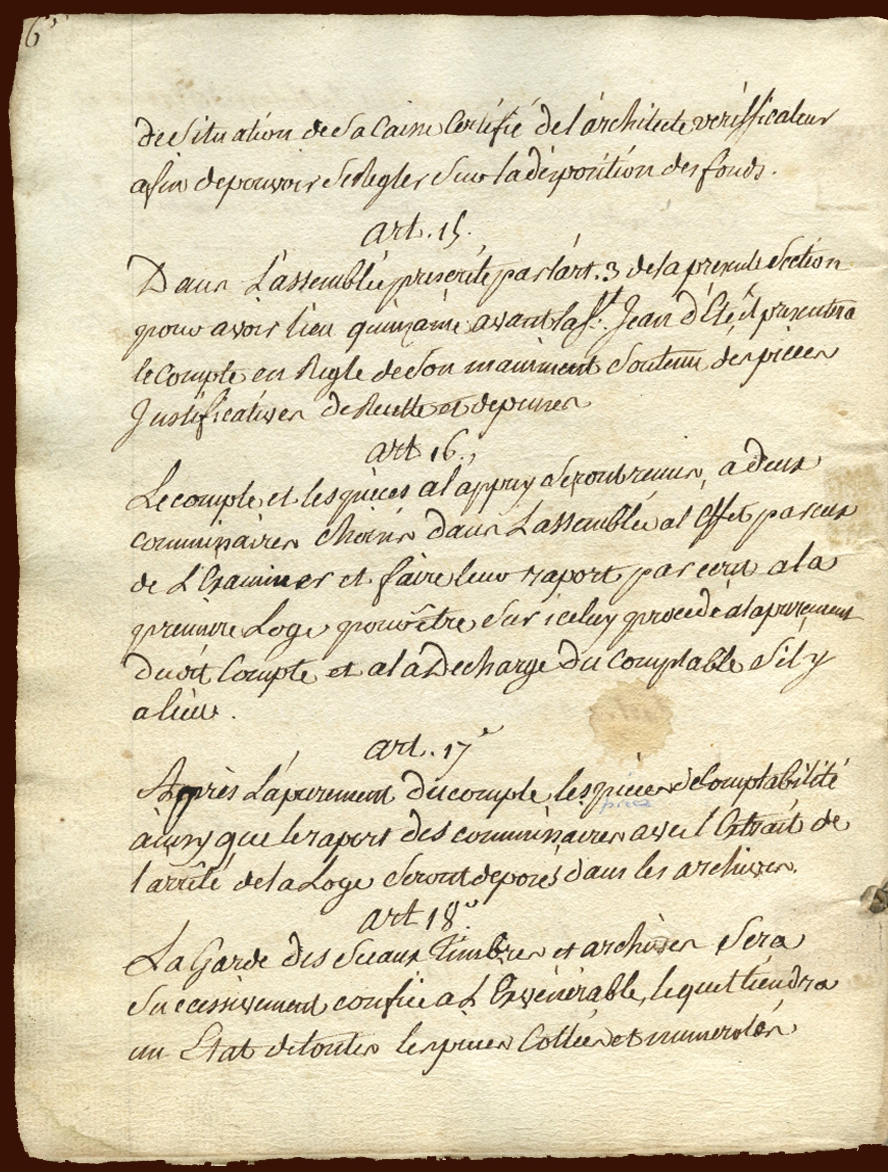 de Situation de Sa Caisse Certifié de l'architecte vérifficateur
afin de pouvoir Se Regler Sur la disposition des fonds.
art. 15.
Dans L'assemblée prescrite par l'art. 3 de la presente Section
pour avoir lieu quinzaine avant la St. Jean d'Eté, il presentera
le Compte en Regle de Son maniment Soutenu des pieces
Justificatives de Recette et depenses
art 16.
Le compte et les pieces a l'appuy Seront remis, a deux
commissaires choisis dans L'assemblée a l'Effet par eux
de L'Examiner et faire leur raport par ecrit a la
premiere Loge pour être Sur iceluy procedé a l'apurement
du dit Compte et a la Decharge du Comptable S'il y
a lieu.
art. 17e
Après L'apurement du compte les pieces de Comptabilité
pieces
ainsy que le raport des commissaires avec l'Extrait de
l'arrêté de la Loge Seront deposés dans les archives.
art 18e.
La Garde des Sceaux Timbres et archives Sera
Successivement confiée a L'Exvénérable, lequel tiendra
un Etat de toutes les pieces Cottées et numerotés